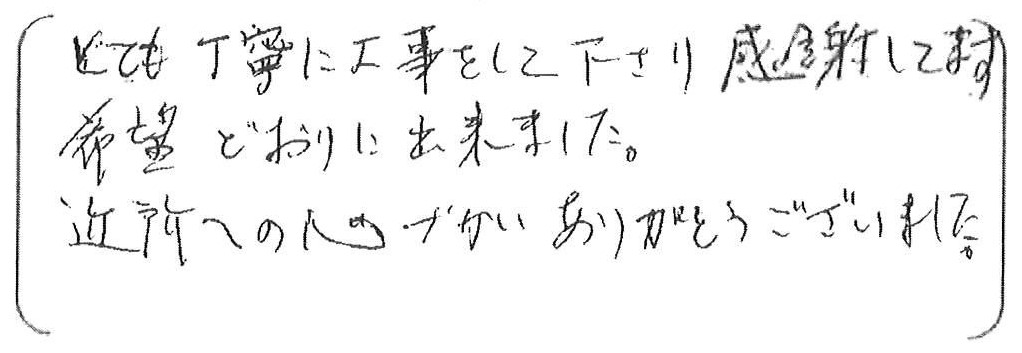 とても丁寧に工事をして下さり 感謝してます
希望どおりに出来ました。
近所への心づかいありがとうございました。